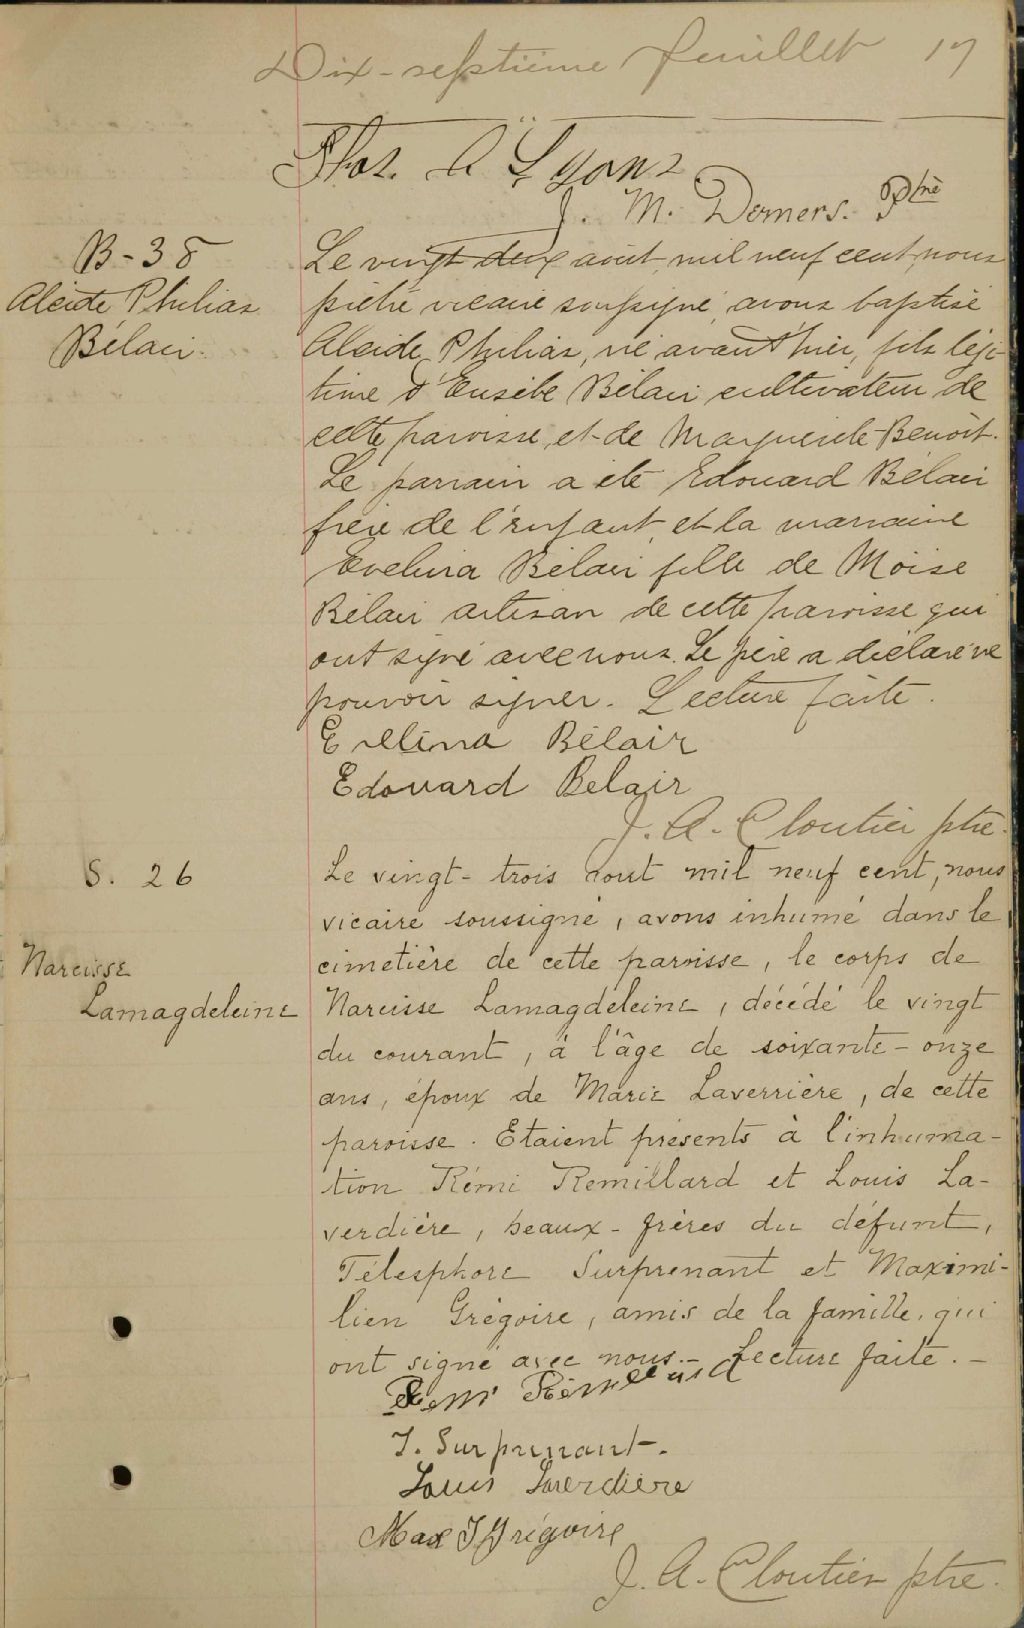 Dix-septième feuillet 17
Thos. A Lyons
J. M. Demers. Ptre
B-38
Alcide Philias
Bélair.
Le vingt deux août, mil neuf cent, nous
prêtre vicaire soussigné, avons baptisé
Alcide Philias, né avant hier, fils légi-
time d'Eusèbe Bélair cultivateur de
cette paroisse, et de Marguerite Benoit.
Le parrain a été Edouard Bélair
frère de l'enfant, et la marraine
Evelina Bélair fille de Moise
Bélair artisan de cette paroisse qui
ont signé avec nous. Le père a déclaré ne
pouvoir signer. Lecture faite.
Evelina Bélair
Edouard Belair
J. A. Cloutier ptre.
S. 26
Narcisse
Lamagdeleine
Le vingt-trois aout mil neuf cent, nous
vicaire soussigné, avons inhumé dans le
cimetière de cette paroisse, le corps de
Narcisse Lamagdeleine, décédé le vingt
du courant, à l'âge de soixante-onze
ans, époux de Marie Laverrière, de cette
paroisse. Etaient présents à l'inhuma-
tion Rémi Remillard et Louis La-
verdière, beaux-frères du défunt,
Télesphore Surprenant et Maximi-
lien Grégoire, amis de la famille, qui
ont signé avec nous.- Lecture faite.-
Remi Rémillard
T. Surprenant.
Louis Laverdière
Max J Grégoire
J. A. Cloutier ptre.